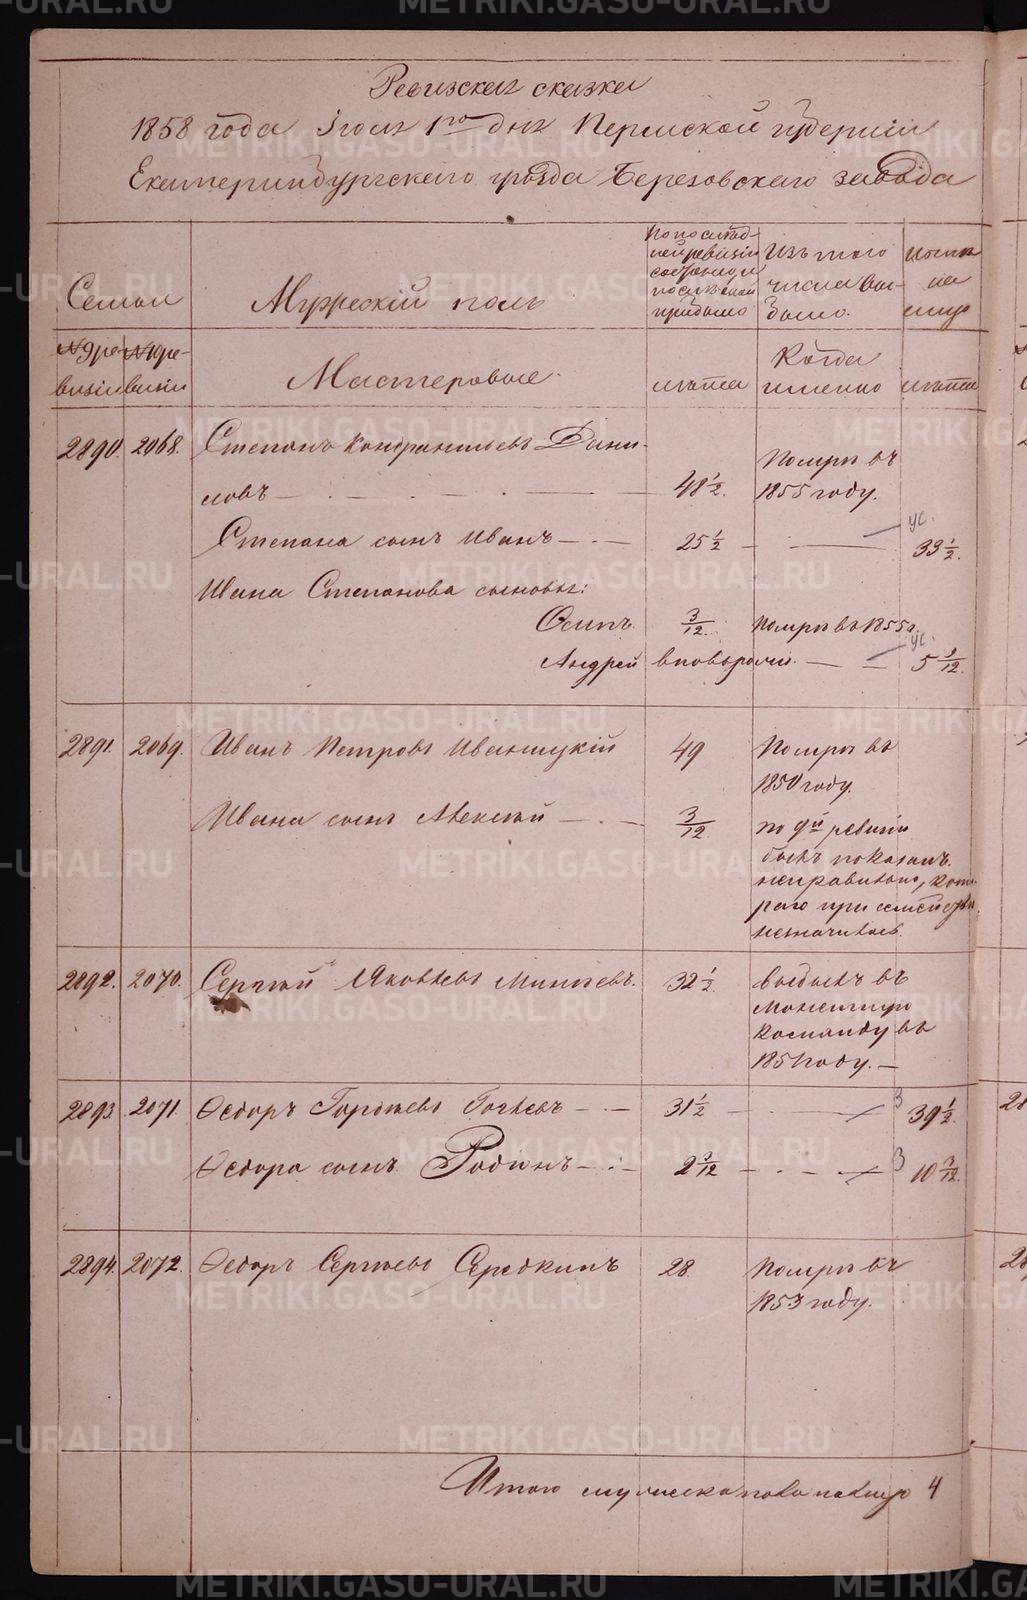 Ревизская сказка
1858 года Iюля 1го дня Пермской губернии
Екатеринбургского уезда Березовского завода
Семьи
Мужескiй полъ
По послед-
ней ревизiи
состояло и
после оной
прибыло
Изъ того
числа вы-
было.
Ныне
на
лицо
№ 9 ре-
визiи
№ 10 ре-
визiи
Мастеровые.
лѣта
Когда
именно
лѣта
2890. 2068. Степанъ Кондратьевъ Дани-
ловъ 48 1/2. Помре въ
1855 году.
Степана сынъ Иванъ 25 1/2 ус. 33 1/2.
Ивана Степанова сыновья:
Осипъ 3/12. Помре въ 1855 г.
Андрей вновьрожд. ус. 5 1/12.
2891. 2069. Иванъ Петровъ Иваницкiй 49 Помре въ
1850 году.
Ивана сынъ Алексѣй 3/12 по 9й ревизiи
былъ показанъ
неправильно, кото-
раго при семействѣ
незначилось.
2892. 2070. Сергѣй Яковлевъ Минѣевъ. 32 1/2 Выбылъ въ
Монетную
команду въ
1851 году.
2893. 2071. Ѳедоръ Гордѣевъ 31 1/2 З 39 1/2.
Ѳедора сынъ Родiонъ 2 3/12 З 10 3/12.
2894. 2072. Ѳедоръ Сергѣевъ Середкинъ 28. Помре въ
1853 году.
Итого мужеска пола налицо 4
METRIKI.GASO-URAL.RU